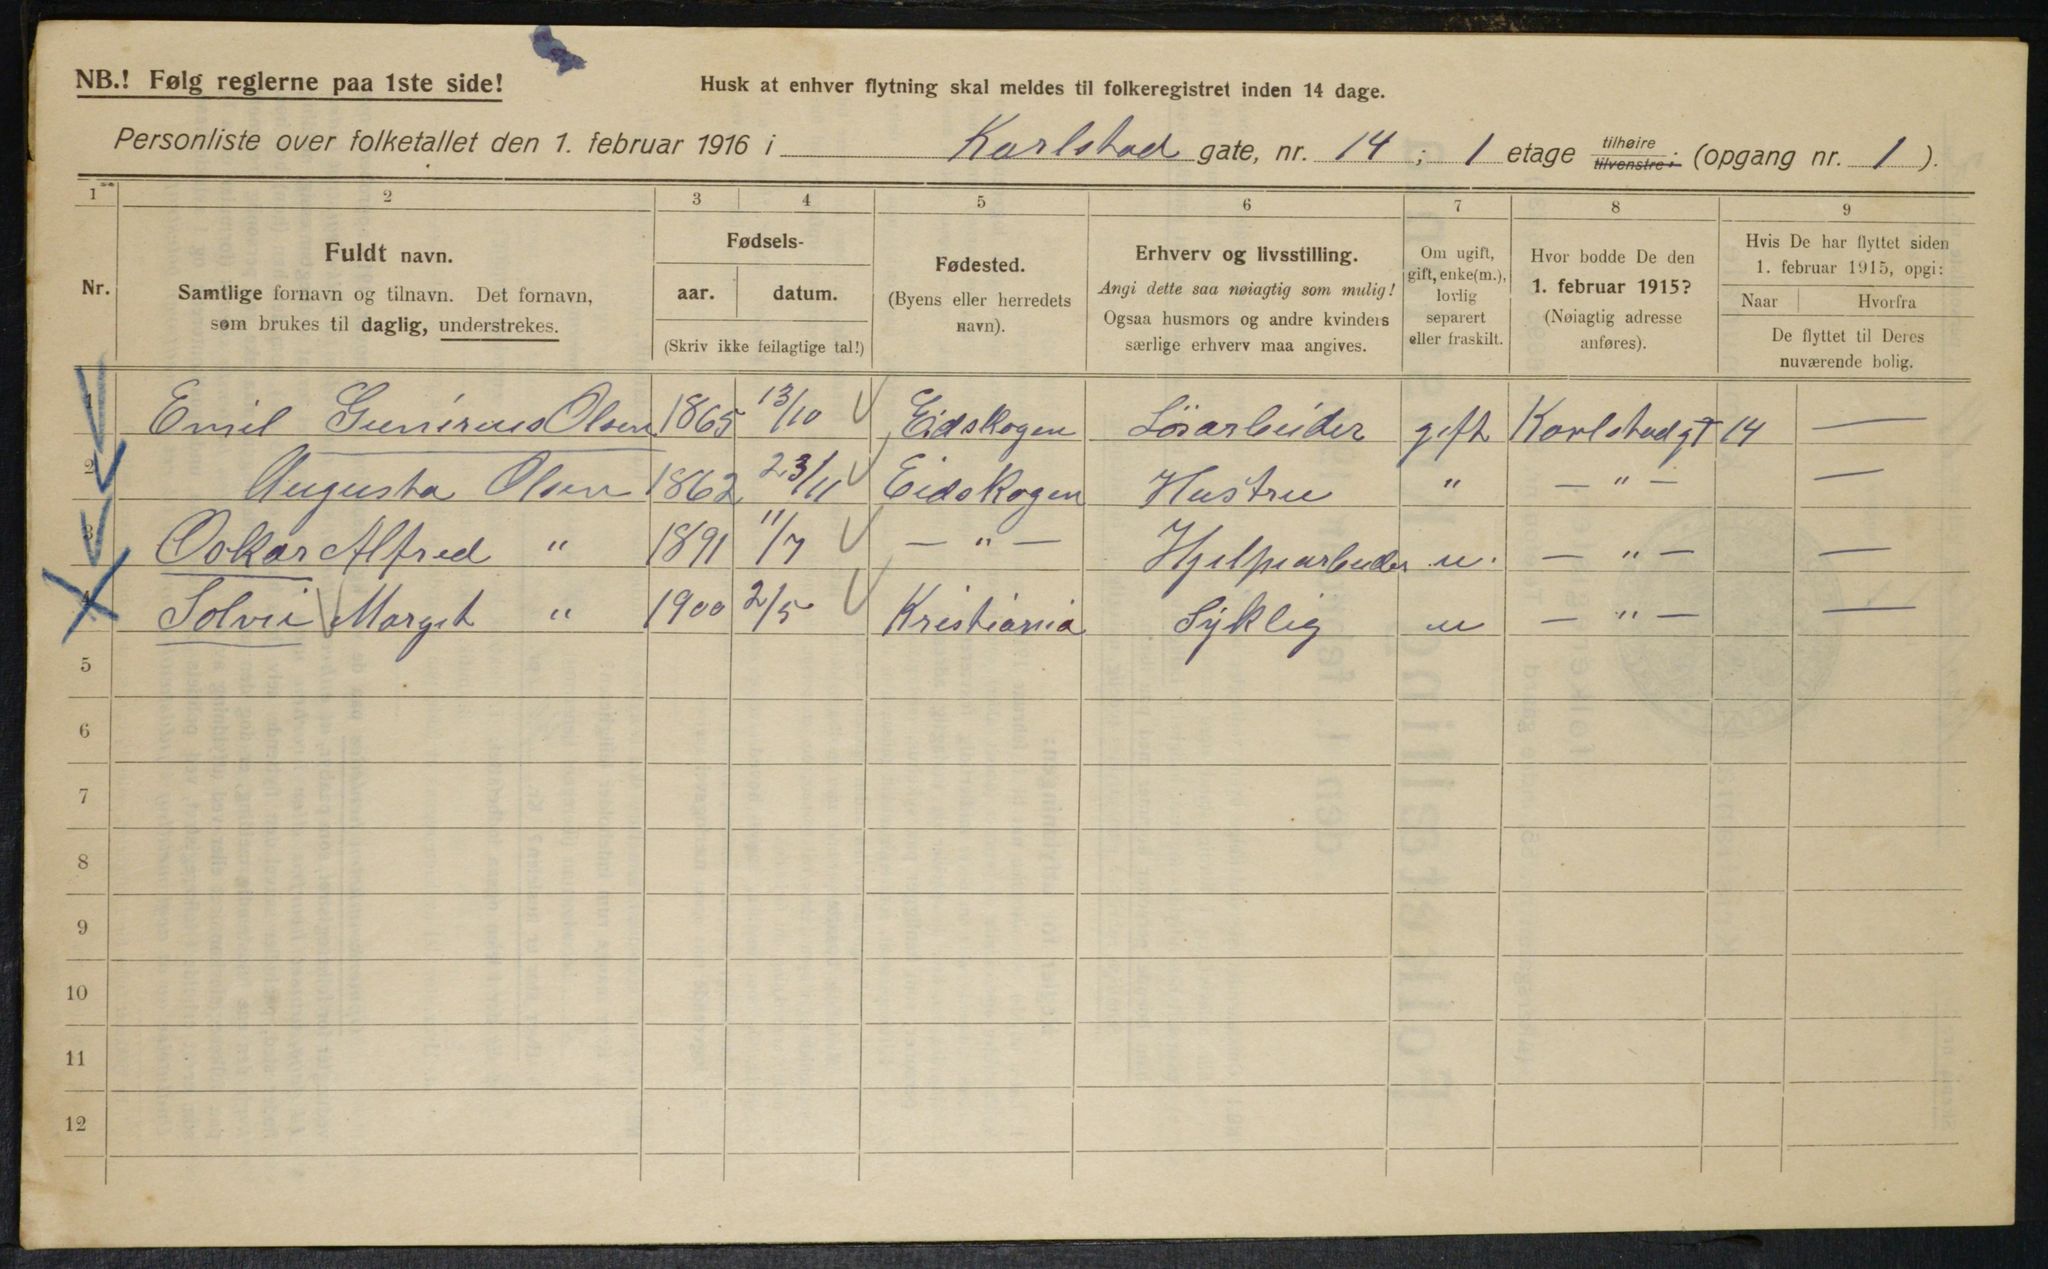 NB.! Følg reglerne paa 1ste side!
Husk at enhver flytning skal meldes til folkeregistret inden 14 dage.
Personliste over folketallet den 1. februar 1916 i Karlstad gate, nr. 14 ; 1 etage tilhøire tilvenstre; (opgang nr. 1 ).
1 2 3 4 5 6 7 8 9
Nr.
Fuldt navn.
Samtlige fornavn og tilnavn. Det fornavn,
som brukes til daglig, understrekes.
Fødsels-
aar. datum.
(Skriv ikke feilagtige tal!)
Fødested.
(Byens eller herredets
navn).
Erhverv og livsstilling.
Angi dette saa nøiagtig som mulig!
Ogsaa husmors og andre kvinders
særlige erhverv maa angives.
Om ugift,
gift, enke(m.),
lovlig
separert
eller fraskilt.
Hvor bodde De den
1. februar 1915?
(Nøiagtig adresse
anføres).
Hvis De har flyttet siden
1. februar 1915, opgi:
Naar Hvorfra
De flyttet til Deres
nuværende bolig.
1 Emil Gunirius Olsen 1865 13/10 Eidskogen Løsarbeider gift Karlstadgt 14 —
2 Augusta Olsen 1862 23/11 Eidskogen Hustru " — " — —
3 Oskar Alfred " 1891 11/7 — " — Hjelpearbeider u. — " — —
4 Solvei Margit " 1900 2/5 Kristiania Syklig u — " — —
5
6
7
8
9
10
11
12